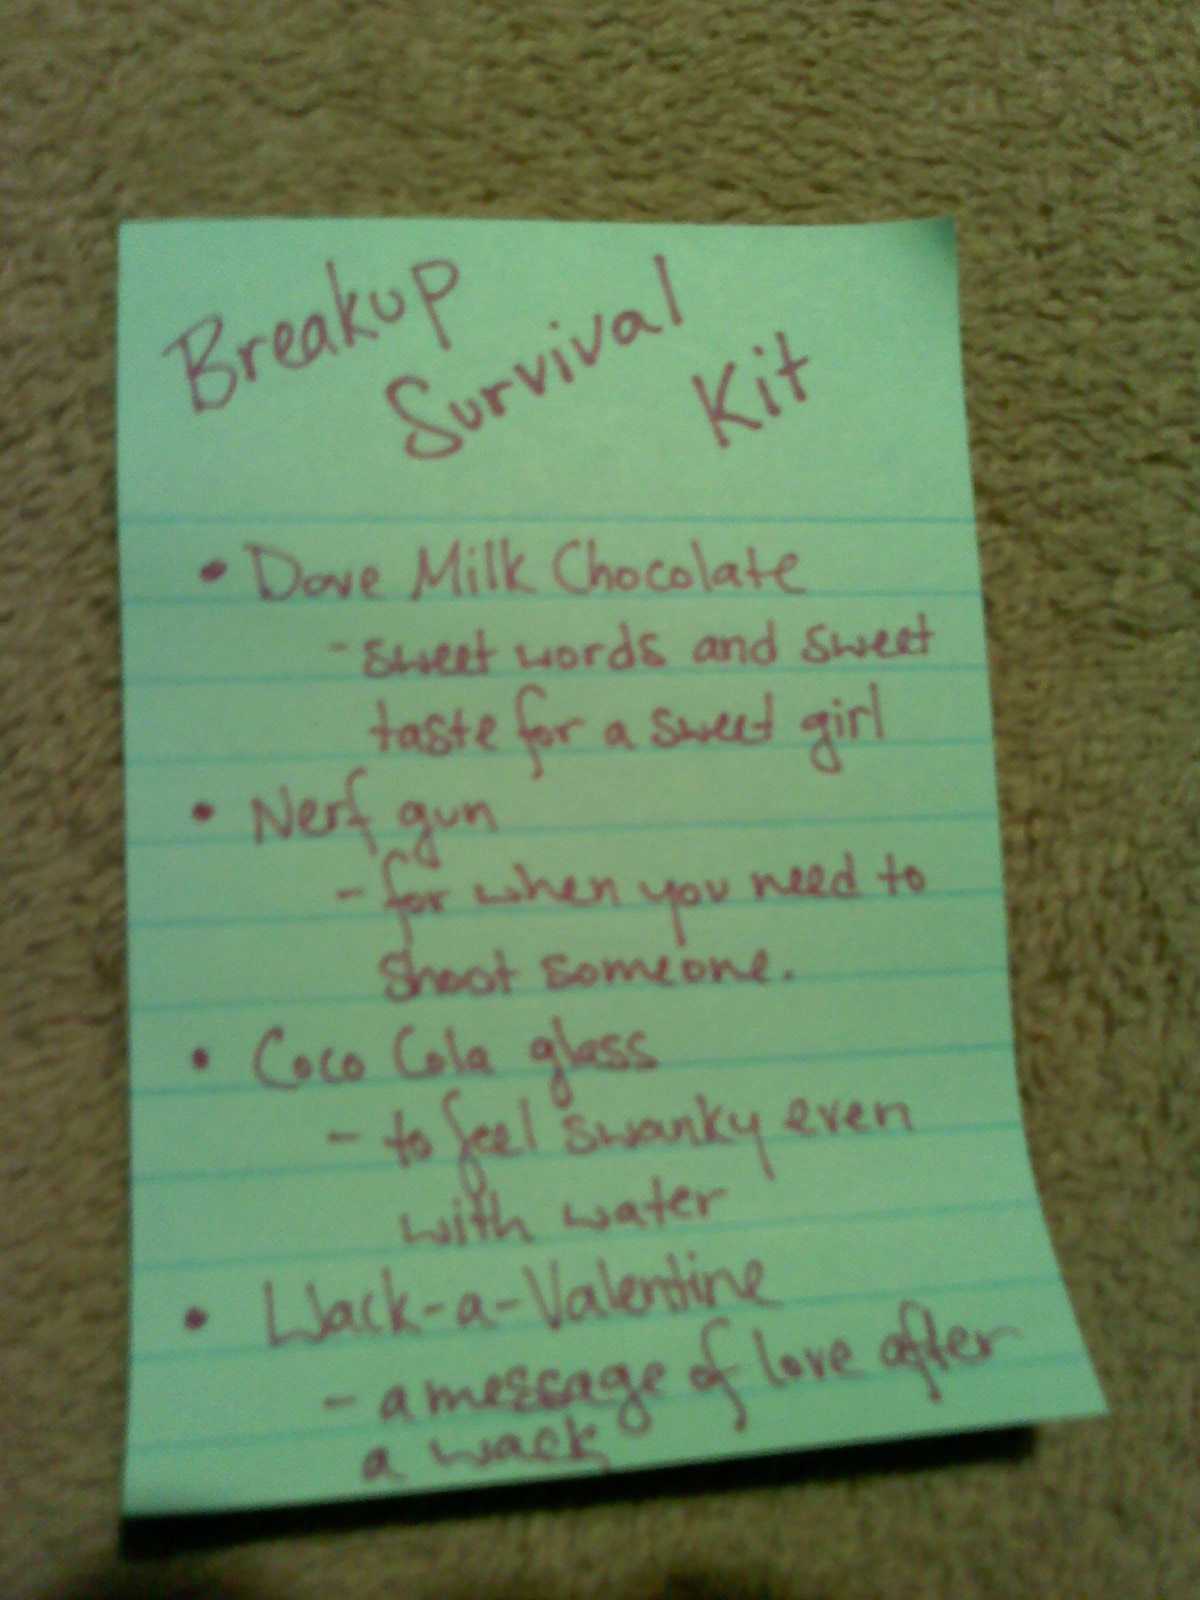 Breakup
Survival
Kit
• Dove Milk Chocolate
- sweet words and sweet
taste for a sweet girl
• Nerf gun
- for when you need to
shoot someone.
• Coco Cola glass
- to feel swanky even
with water
• Wack-a-Valentine
- a message of love after
a wack